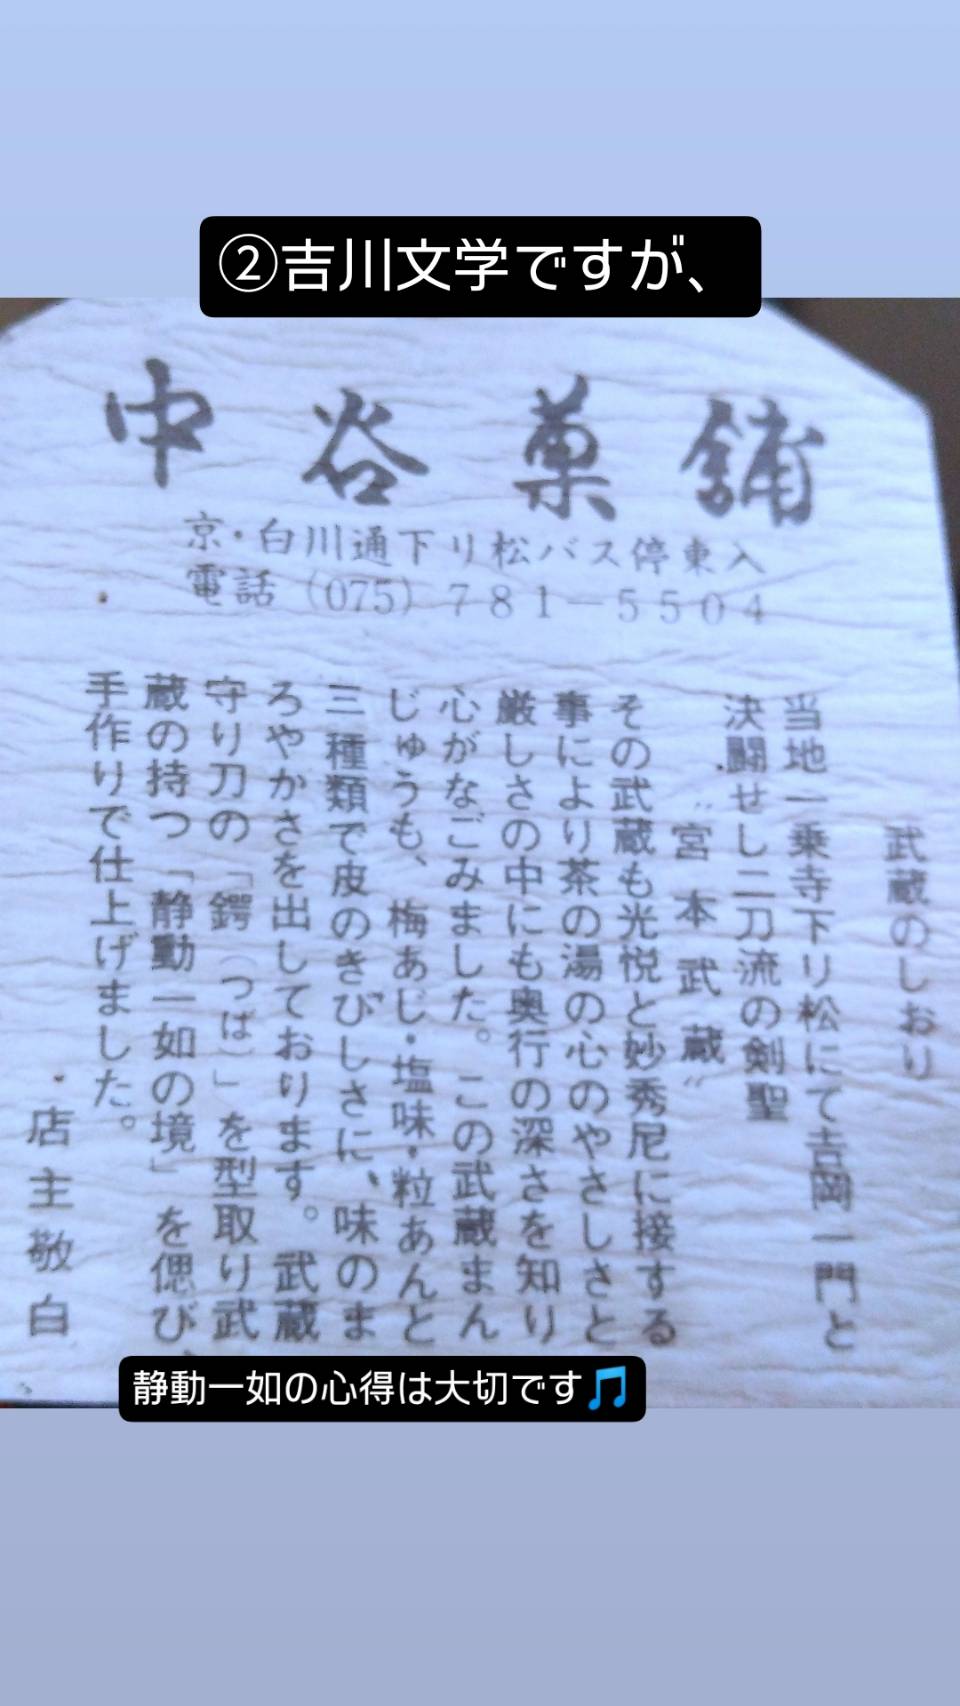 ②吉川文学ですが、
中谷菓舗
京・白川通下り松バス停東入
電話（075）781－5504
武蔵のしおり
当地一乗寺下り松にて吉岡一門と
決闘せし二刀流の剣聖
〝宮本武蔵〟
その武蔵も光悦と妙秀尼に接する
事により茶の湯の心のやさしさと
厳しさの中にも奥行の深さを知り
心がなごみました。この武蔵まん
じゅうも、梅あじ・塩味・粒あんと
三種類で皮のきびしさに、味のま
ろやかさを出しております。武蔵
守り刀の「鍔（つば）」を型取り武
蔵の持つ「静動一如の境」を偲び、
手作りで仕上げました。
店主敬白
静動一如の心得は大切です🎵